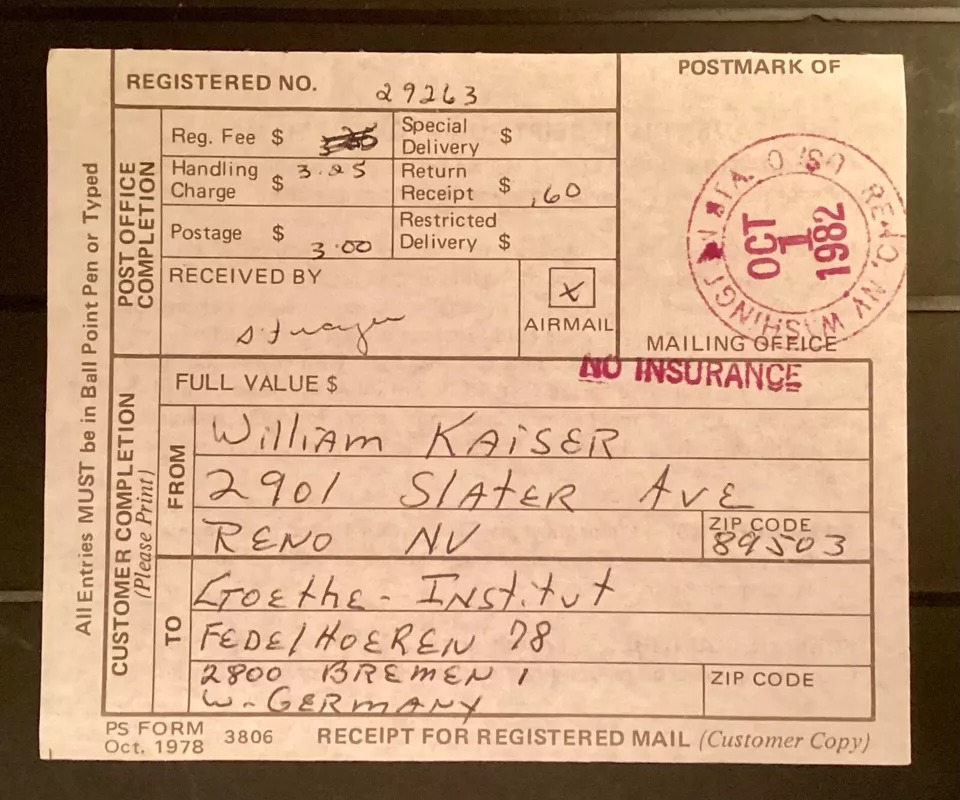 All Entries MUST be in Ball Point Pen or Typed
REGISTERED NO. 29263
POST OFFICE COMPLETION
Reg. Fee $
Special Delivery $
Handling Charge $ 3.25
Return Receipt $ .60
Postage $ 3.00
Restricted Delivery $
RECEIVED BY
X
AIRMAIL
POSTMARK OF
WASHINGTON STA. RENO, NV
OCT
1
1982
MAILING OFFICE
NO INSURANCE
CUSTOMER COMPLETION
(Please Print)
FULL VALUE $
FROM
William KAiSER
2901 SlAtER AvE
RENO NV
ZIP CODE
89503
TO
GOEthe-INStitut
FEDElHOEREN 78
2800 BREMEN 1
W-GERMANY
ZIP CODE
PS FORM
Oct. 1978 3806 RECEIPT FOR REGISTERED MAIL (Customer Copy)